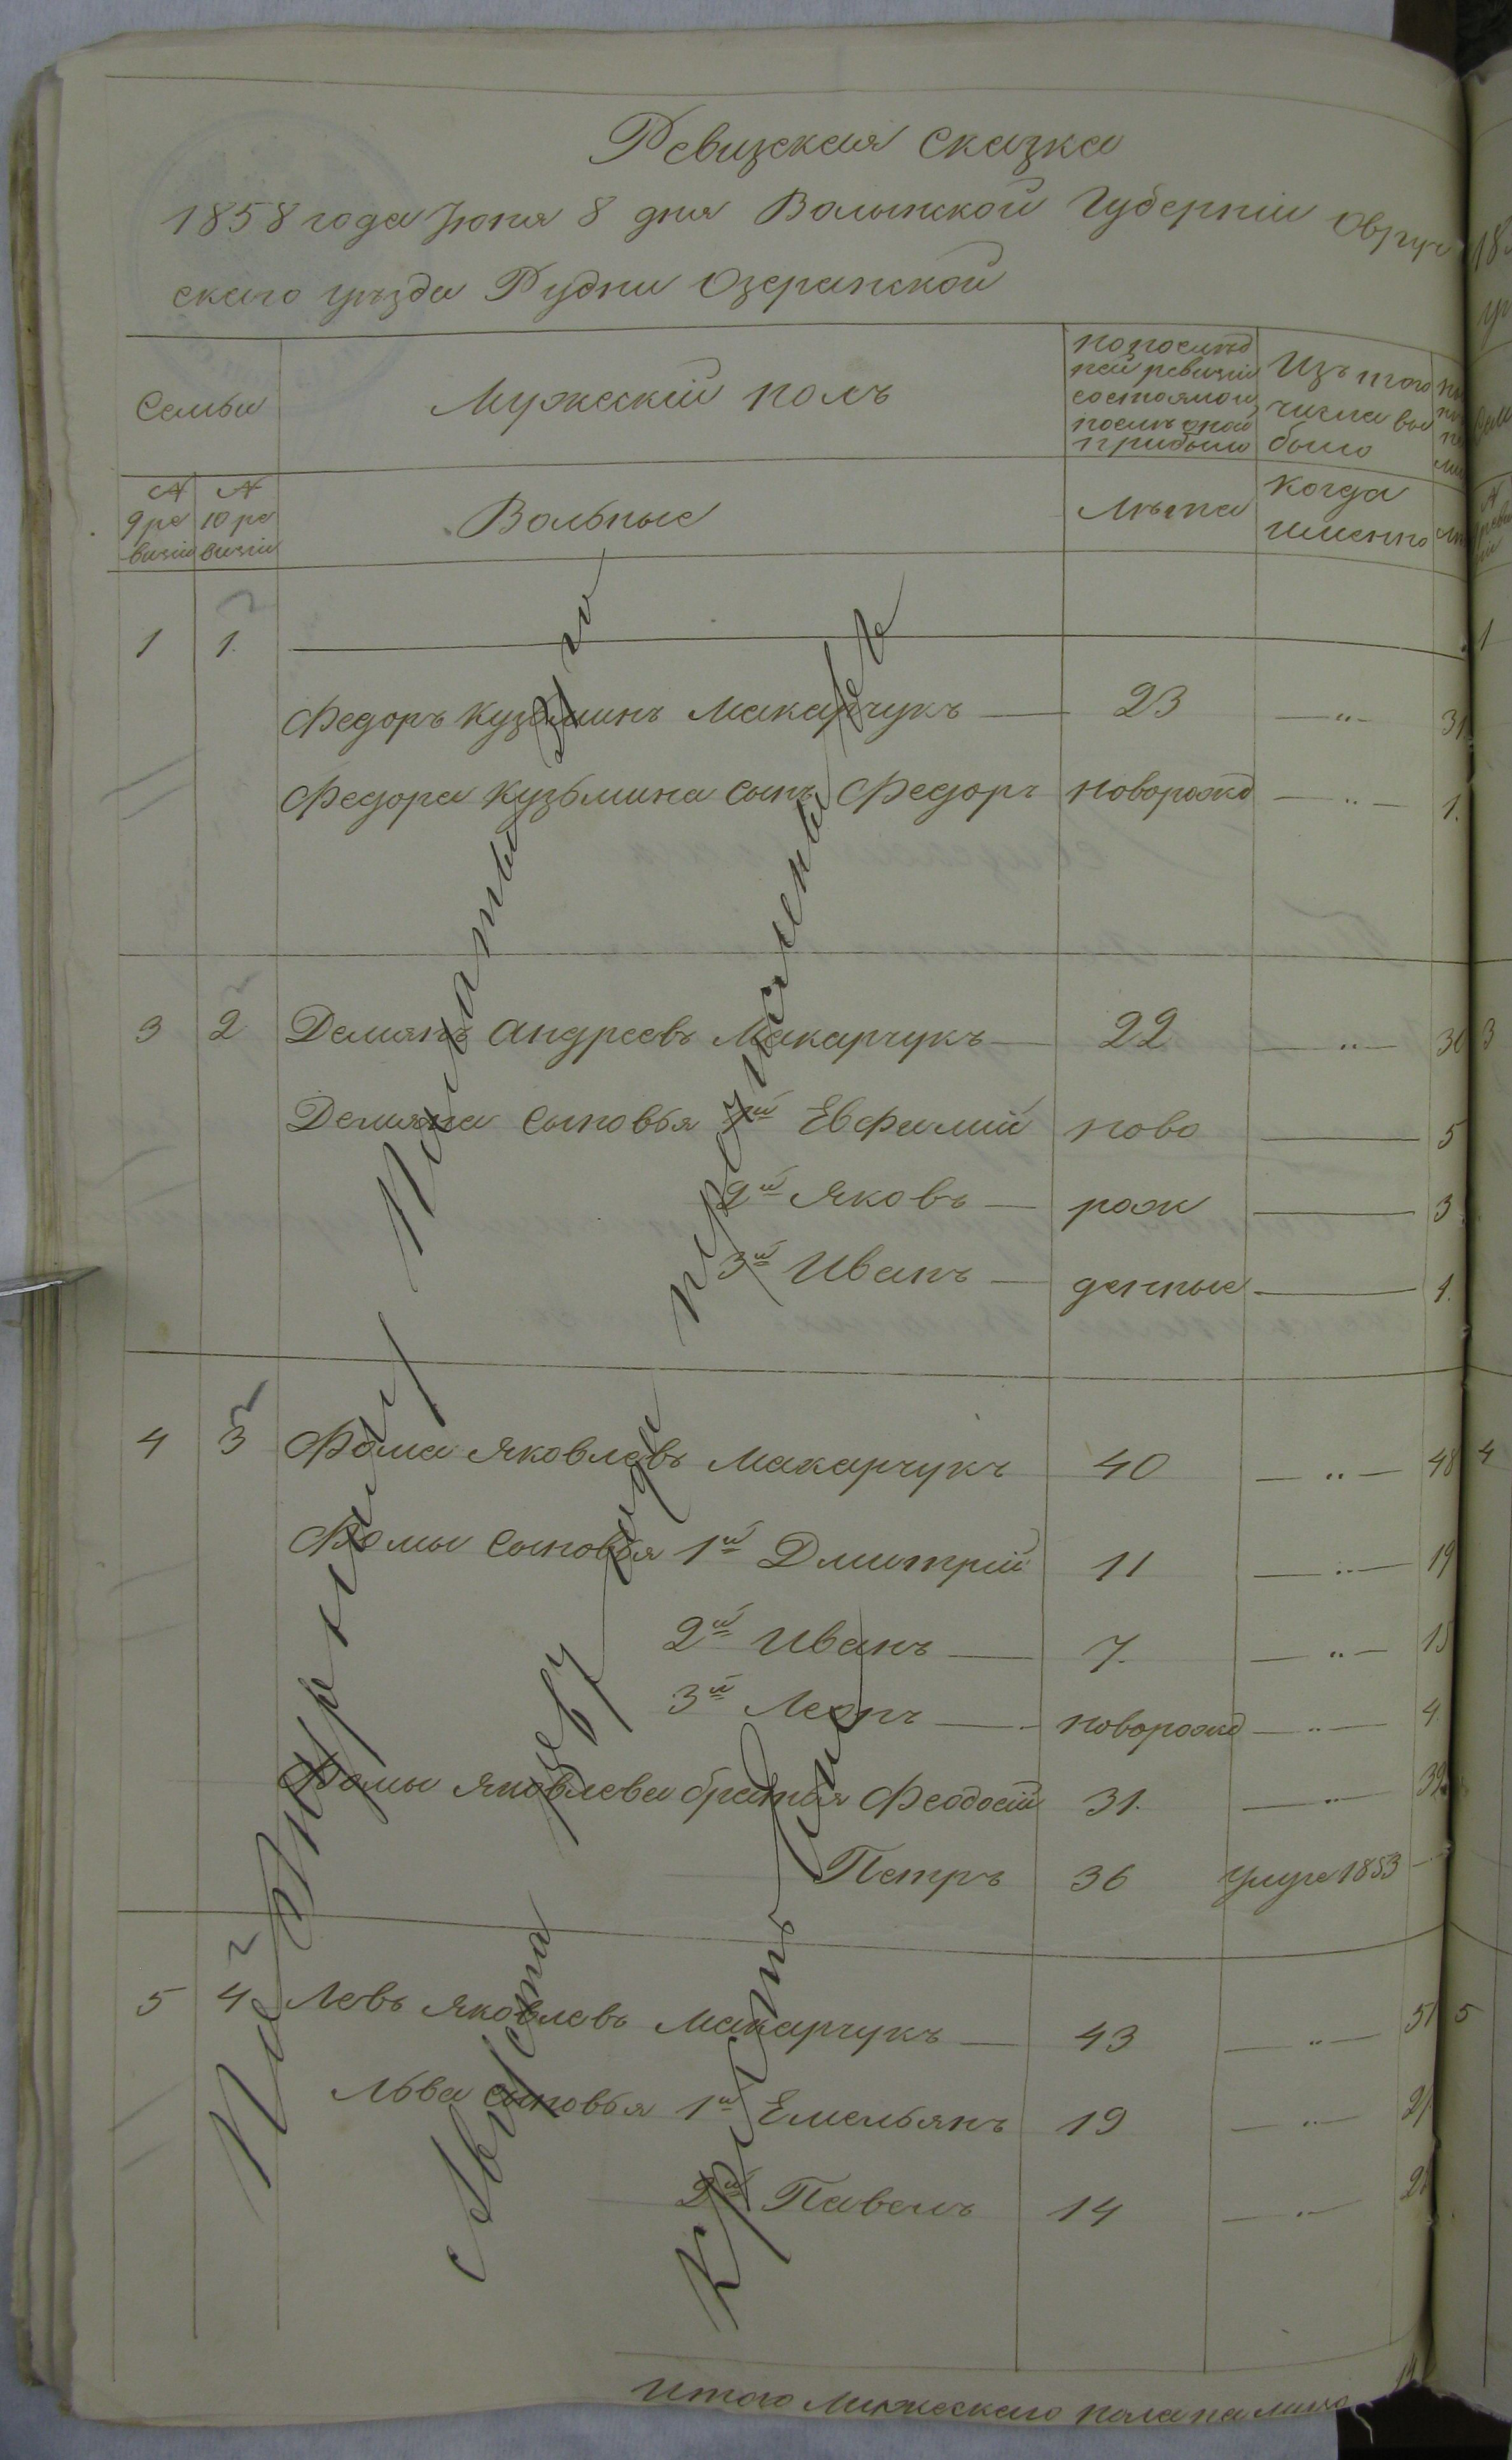 Ревизская сказка
1858 года Іюня 8 дня Волынской Губерніи Овруч
скаго уѣзда Рудни Озеранской
Семьи
Мужескій полъ
по послѣд
ней ревизіи
состоялои
послѣ оной
прибыло
Изъ того
числа вы
было
№ 9 ре
визіи
№ 10 ре
визіи
Вольные
Лѣта
когда
именно
1 1.
Федоръ Кузьминъ Макарчукъ — 23 — „ — 31
Федора Кузьмина сынъ Федоръ новорожд — „ — 1.
3 2 Демянъ Андреевъ Макарчукъ — 22 — „ — 30
Демяна сыновья 1й Евфимій ново — 5
2й Яковъ — рож — 3
3й Иванъ — денные — 1.
4 3 Фома Яковлевъ Макарчукъ 40 — „ — 48
Фомы сыновья 1й Дмитрій 11 — „ — 19
2й Иванъ — 7. — „ — 15
3й Леонъ — новорожд — „ — 4
Фомы Яковлева братья Феодосій 31. — „ — 39
Петръ 36 умре 1853 —
5 4 Левъ Яковлевъ Макарчукъ — 43 — „ — 51
Льва сыновья 1й Емельянъ 19 — „ —
2й Павелъ 14 — „ —
Августа года перечислены
Крестьяне
Итого Мужескаго пола на лицо